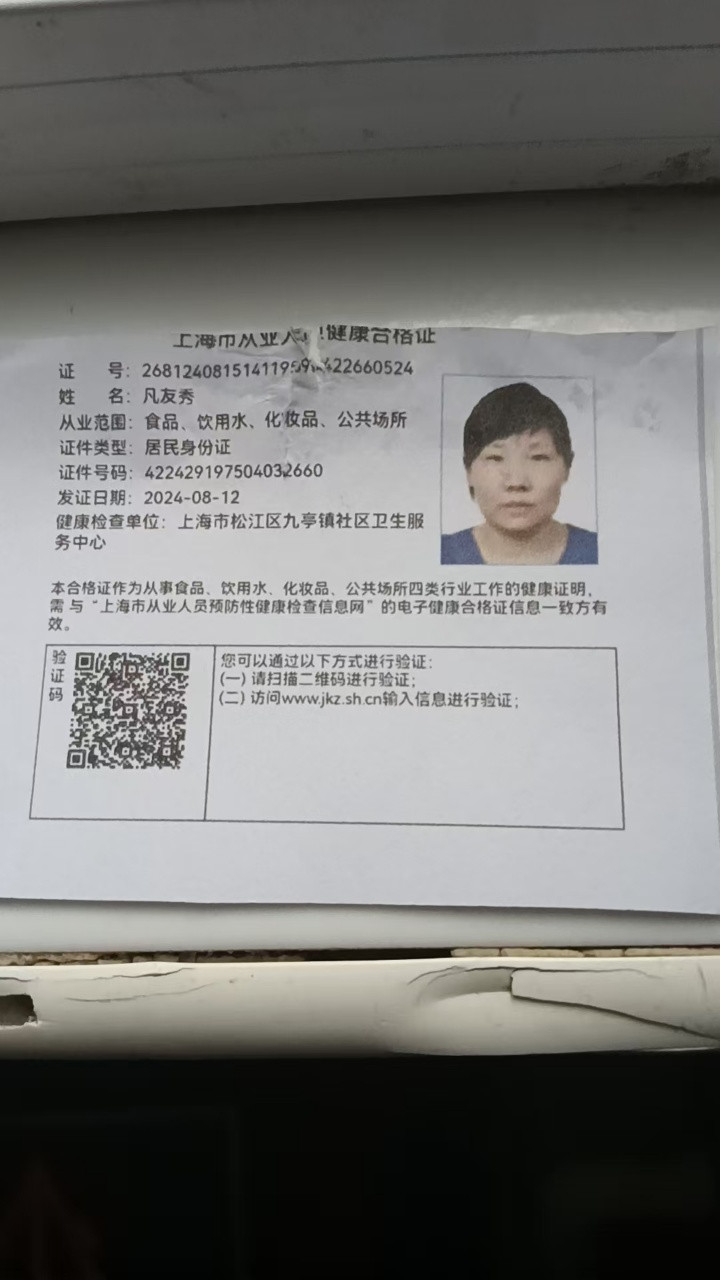 上海市从业人员健康合格证
证 号：
姓 名：凡友秀
从业范围：食品、饮用水、化妆品、公共场所
证件类型：居民身份证
证件号码：422429197504032660
发证日期：2024-08-12
健康检查单位：上海市松江区九亭镇社区卫生服
务中心
本合格证作为从事食品、饮用水、化妆品、公共场所四类行业工作的健康证明，
需 与“上海市从业人员预防性健康检查信息网”的电子健康合格证信息一致方有
效。
验证码
您可以通过以下方式进行验证：
(一) 请扫描二维码进行验证；
(二) 访问www.jkz.sh.cn输入信息进行验证；